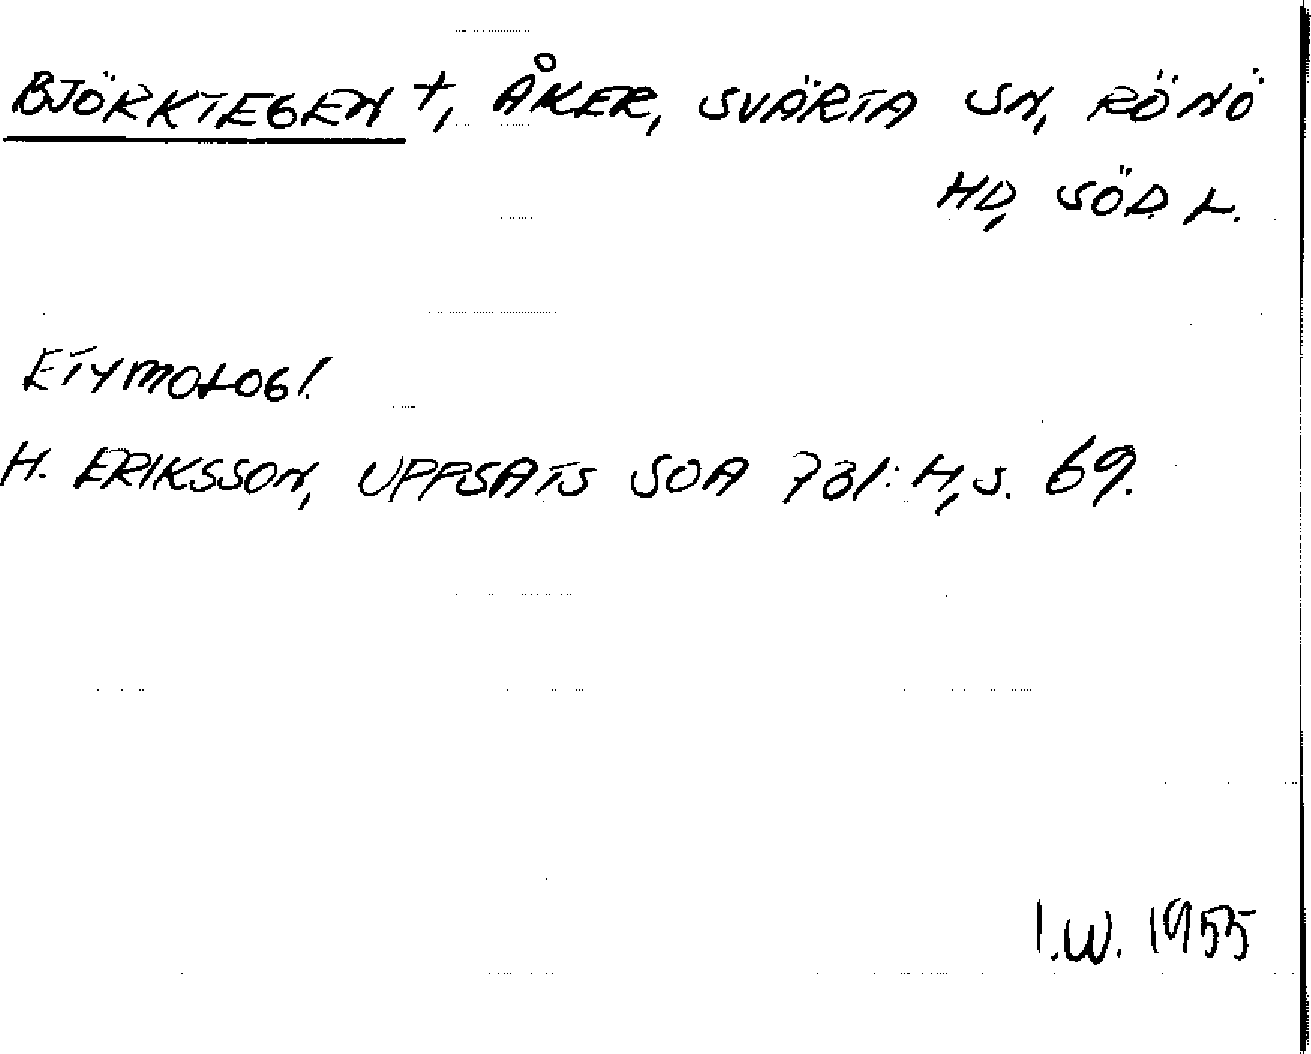 BJÖRKTEGEN +, ÅKER, SVÄRTA SN, RÖNÖ
HD, SÖD L.
ETYMOLOGI.
H. ERIKSSON, UPPSATS SOA 731:H, S. 69.
I.W. 1955